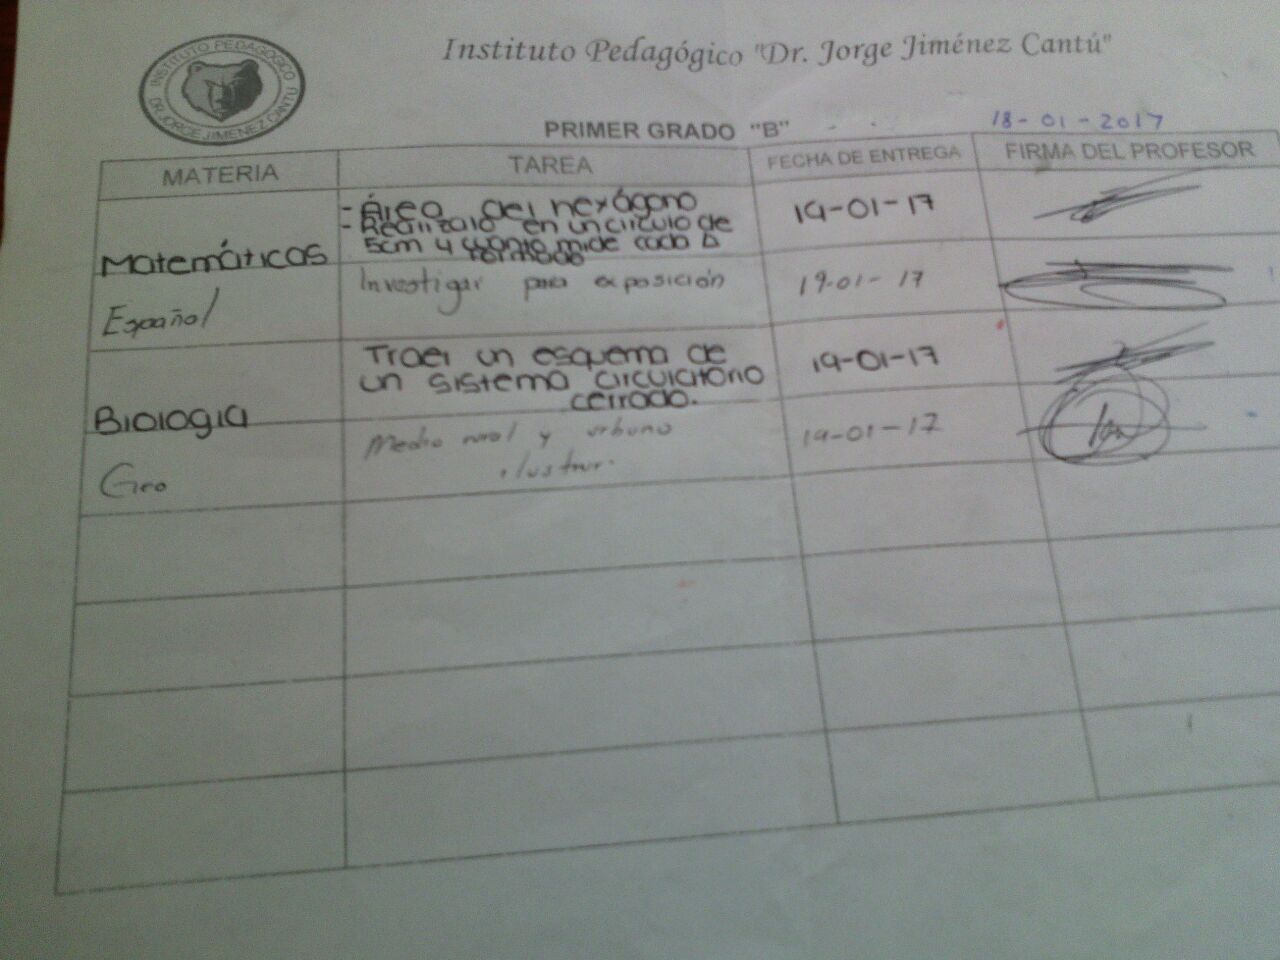 Instituto Pedagógico "Dr. Jorge Jiménez Cantú"
INSTITUTO PEDAGOGICO
DR. JORGE JIMENEZ CANTU
PRIMER GRADO "B"
18-01-2017
MATERIA TAREA FECHA DE ENTREGA FIRMA DEL PROFESOR
Matemáticas
- Área del hexágono
- Realizalo en un circulo de
5cm y cuanto mide cada Δ
formado
19-01-17
Español Investigar para exposición 19-01-17
Biologia
Traer un esquema de
un sistema circulatorio
cerrado.
19-01-17
Geo
Medio rural y urbano
ilustrar.
19-01-17